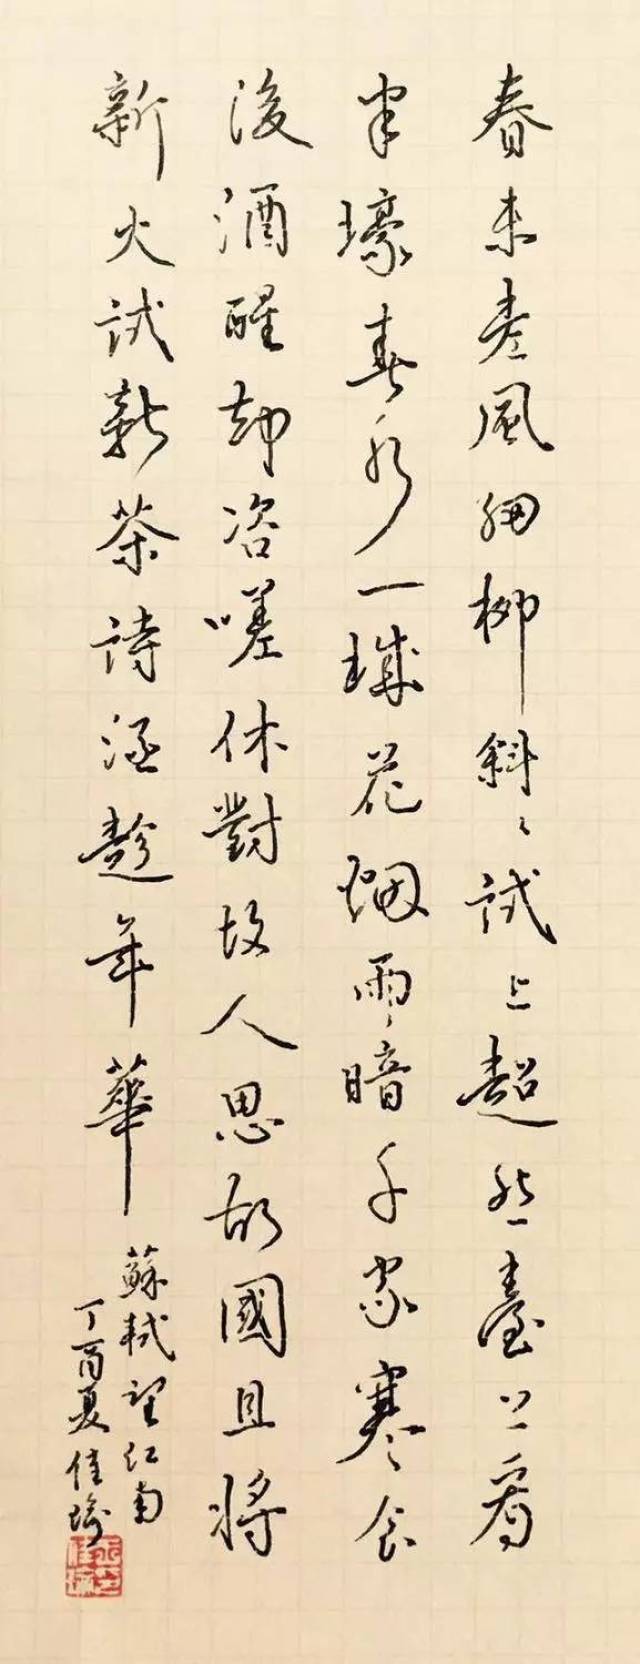 春未老風細柳斜〻試上超然臺上看
半壕春水一城花烟雨暗千家寒食
後酒醒却咨嗟休對故人思故國且將
新火試新茶詩酒趁年華
蘇軾望江南
丁酉夏佳